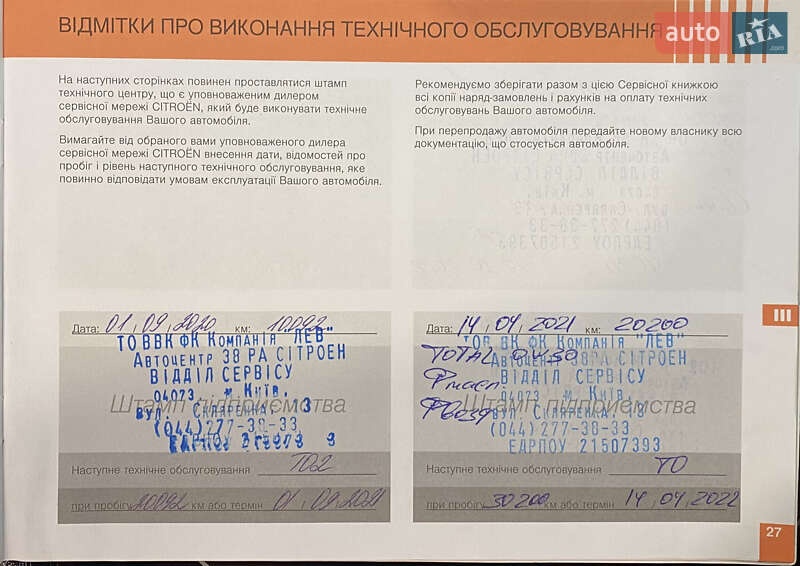 ВІДМІТКИ ПРО ВИКОНАННЯ ТЕХНІЧНОГО ОБСЛУГОВУВАННЯ
auto RIA.com
На наступних сторінках повинен проставлятися штамп
технічного центру, що є уповноваженим дилером
сервісної мережі CITROËN, який буде виконувати технічне
обслуговування Вашого автомобіля.
Вимагайте від обраного вами уповноваженого дилера
сервісної мережі CITROËN внесення дати, відомостей про
пробіг і рівень наступного технічного обслуговування, яке
повинно відповідати умовам експлуатації Вашого автомобіля.
Рекомендуємо зберігати разом з цією Сервісної книжкою
всі копії наряд-замовлень і рахунків на оплату технічних
обслуговувань Вашого автомобіля.
При перепродажу автомобіля передайте новому власнику всю
документацію, що стосується автомобіля.
III
Дата: 01, 09, 2020 км: 10092
ТОВ ВК ФК Компанія "ЛЕВ"
Автоцентр 38 РА СІТРОЕН
ВІДДІЛ СЕРВІСУ
04073, м. Київ,
Штамп підприємства
вул. Скляренка, 13
(044)277-38-33
ЕАРПОУ
Наступне технічне обслуговування ТО2
при пробігу 20092 км або термін 01, 09, 2021
Дата: 14, 04, 2021 км: 20200
ТОВ ВК ФК Компанія "ЛЕВ"
TOTAL 0W30
Автоцентр 38 РА СІТРОЕН
Рмасл
ВІДДІЛ СЕРВІСУ
04073, м. Київ,
Штамп підприємства
вул. Скляренка, 13
(044)277-38-33
ЕАРПОУ 21507393
Наступне технічне обслуговування ТО
при пробігу 30200 км або термін 14, 04, 2022
27